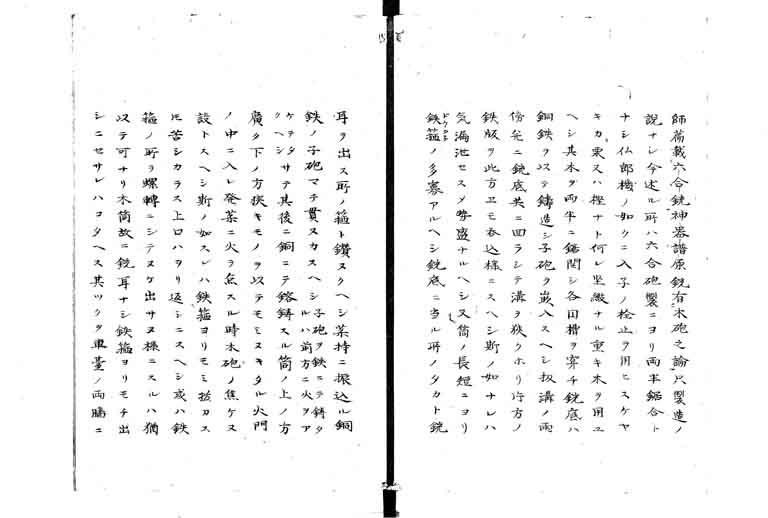 師葡載六合銃神器譜原銃有木砲之論只製造ノ
說ナシ今述ル所ハ六合砲製ニヨリ両半鋸合ト
ナシ仏郎機ノ如クニ入子ノ栓止ヲ用ヒスケヤ
キカ栗又ハ樫ナト何レ堅緻ナル重キ木ヲ用ユ
ヘシ其木ヲ両半ニ鋸開シ各凹槽ヲ穿チ銃底ハ
銅鉄ヲ以テ鑄造シ子砲ヲ嵌入スヘシ扨溝ノ両
傍先ニ銃底共ニ凹ラシテ溝ヲ狭クホリ片方ノ
鉄版ヲ此方ヱモ呑込様ニスヘシ斯ノ如ナレハ
気漏泄セスメ勢盛ナルヘシ又筒ノ長短ニヨリ
鉄箍ノ多寡アルヘシ銃底ニ当ル所ノタカト銃
耳ヲ出ス所ノ箍ト鑽ヌクヘシ薬持ニ振込ル銅
鉄ノ子砲マテ貫ヌカスヘシ子砲ヲ鉄ニテ鋳タルハ前方ニ火ヲア
ケテタクヘシサテ其後ニ銅ニテ鎔鋳スル筒ノ上ノ方
廣ク下ノ方狹キモノヲ以テモミヌキタル火門
ノ中ニ入レ発薬ニ火ヲ点スル時木砲ノ焦ケヌ
設トスヘシ斯ノ如スレハ鉄箍ヨリモミ抜カス
トモ苦シカラス上口ハヲリ返シニスヘシ或ハ鉄
箍ノ所ヲ螺轉ニシテヌケ出サヌ様ニスルハ猶
以テ可ナリ木筒故ニ銃耳ナシ鉄箍ヨリモチ出
シニセサレハコタヘス其ツクヲ車臺ノ両牆ニ